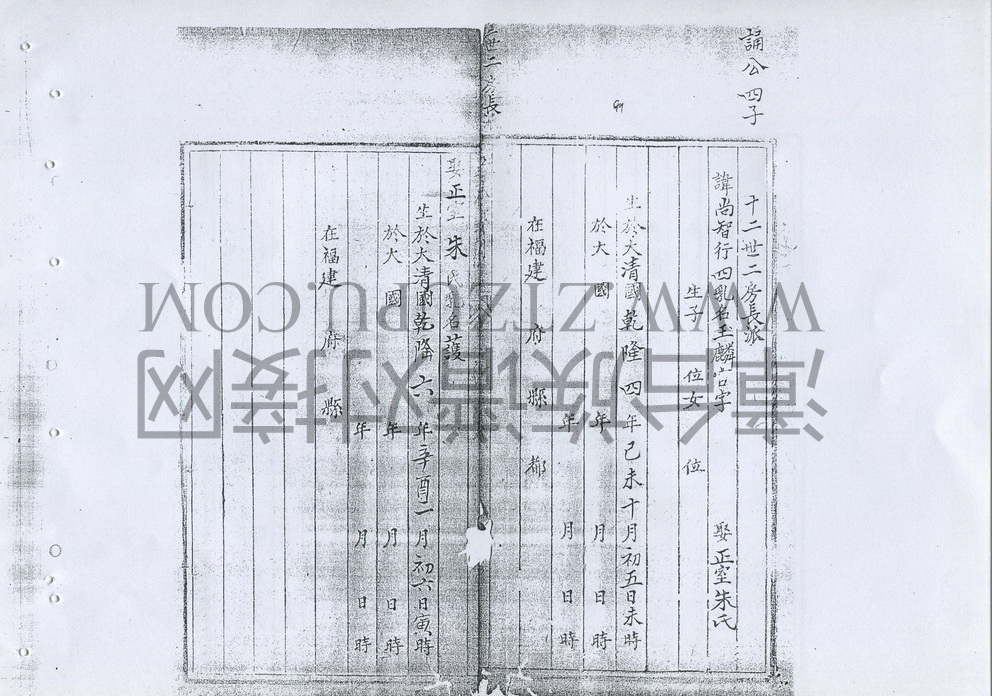 誦公四子
十二世二房長派
諱尚智行四乳名玉麟官字 娶正室朱氏
生子 位女 位
生於大清國乾隆四年己未十月初五日未時
於大 國 年 月 日 時
年 月 日 時
在福建 府 縣 都
世二房長
娶正室朱氏乳名護
生於大清國乾隆六年辛酉二月初六日寅時
於大 國 年 月 日 時
年 月 日 時
在福建 府 縣
漳台族谱对接网
WWW.ZTZUPU.COM